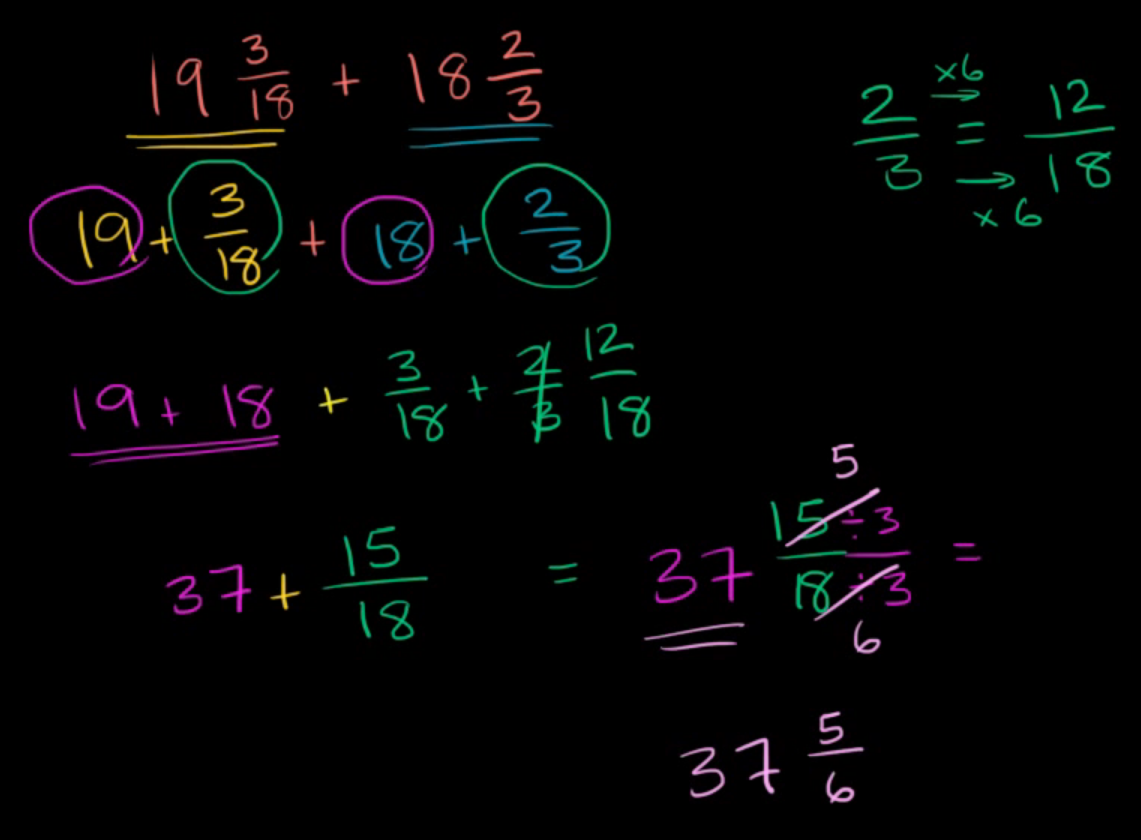 19 3/18 + 18 2/3
2/3 = 12/18
×6 →
→ ×6
19 + 3/18 + 18 + 2/3
19 + 18 + 3/18 + 2/3 12/18
37 + 15/18 = 37 15÷3/18÷3 =
5
6
37 5/6